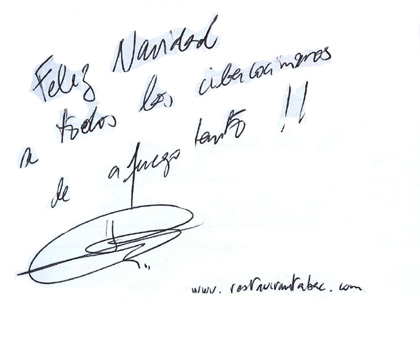 Feliz Navidad
a todos los cibercocineros
de afuegolento !!
www.restaurantabac.com